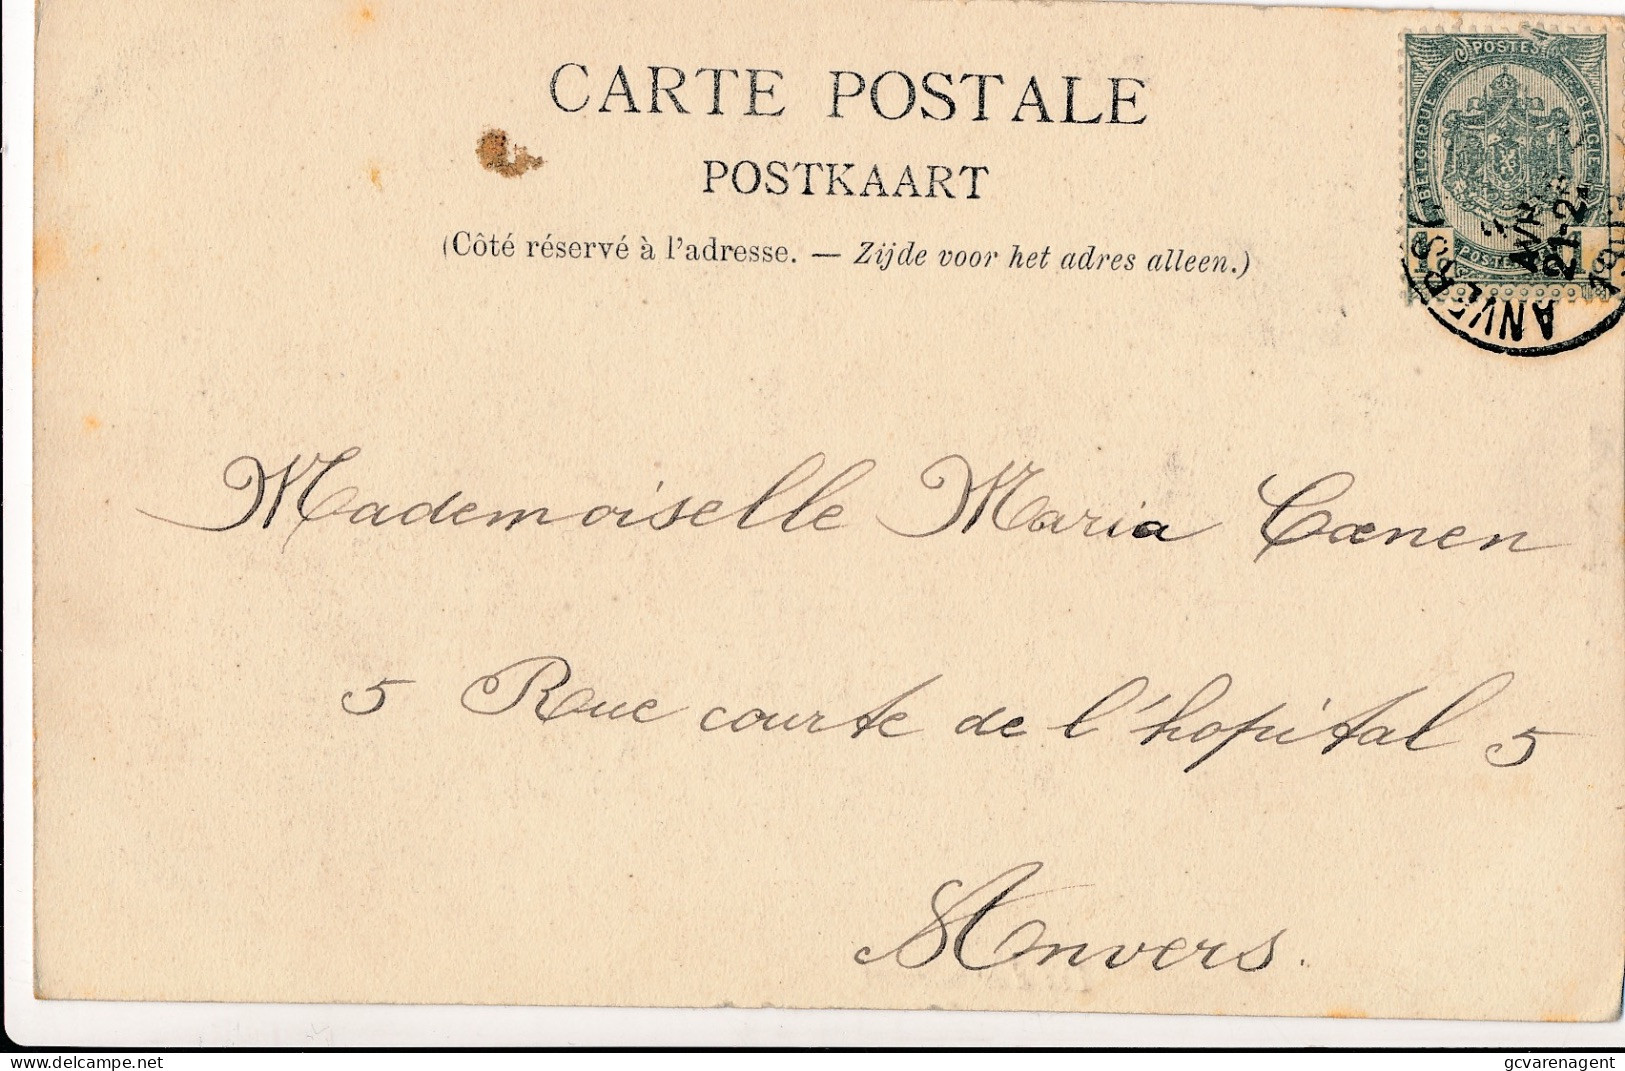 CARTE POSTALE
POSTKAART
(Côté réservé à l'adresse. — Zijde voor het adres alleen.)
POSTES
BELGIQUE
BELGIE
1 POSTE 1
ANVERS
AVR
21-2
Mademoiselle Maria Coenen
5 Rue courte de l'hopital 5
Anvers.
delcampe.net
gcvarenagent